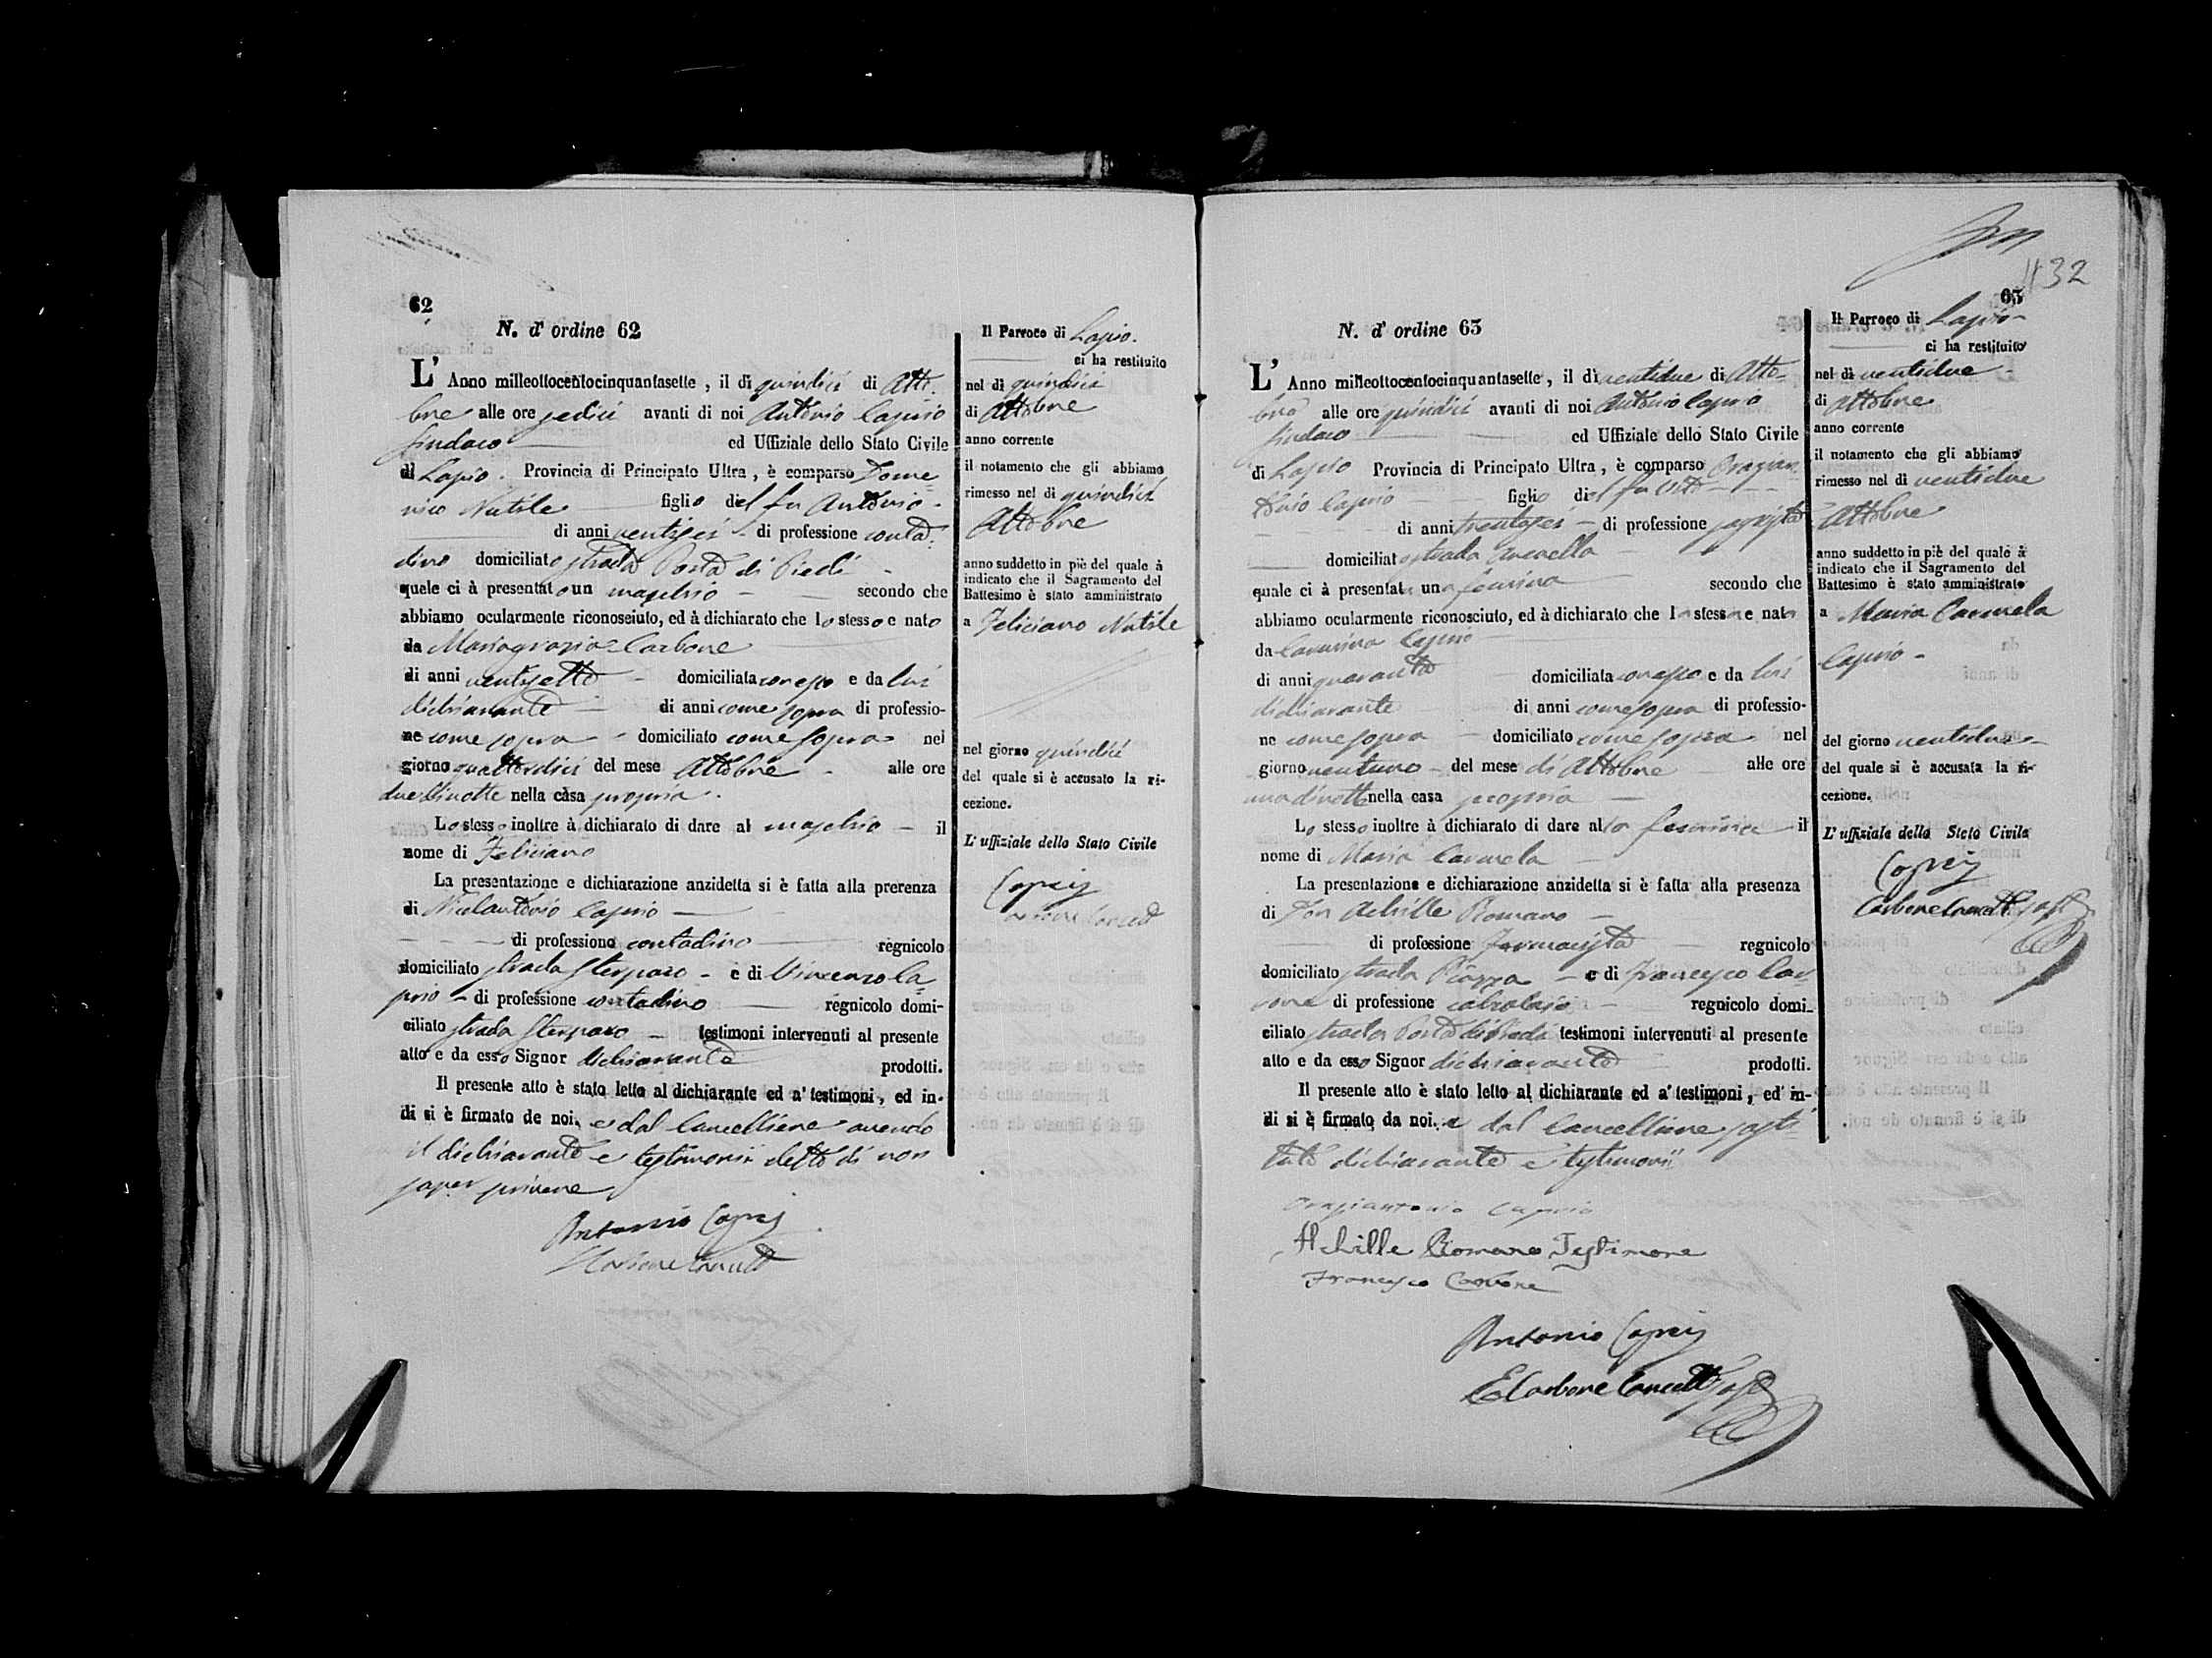 62
N. d' ordine 62
L' Anno milleottocentocinquantasette, il dì quindici di Otto-
bre alle ore sedici avanti di noi Antonio Caprio
Sindaco ed Uffiziale dello Stato Civile
di Lapio. Provincia di Principato Ultra, è comparso Dome-
nico Nutile figlio del fu Antonio
di anni ventisei di professione conta-
dino domiciliato strada Porta di Piedi
quale ci à presentato un maschio secondo che
abbiamo ocularmente riconosciuto, ed à dichiarato che lo stesso e nato
da Mariagrazia Carbone
di anni ventisette domiciliata con esso e da lui
dichiarante di anni come sopra di professio-
ne come sopra domiciliato come sopra nel
giorno quattordici del mese Ottobre alle ore
due di notte nella casa propria.
Lo stesso inoltre à dichiarato di dare al maschio il
nome di Feliciano
La presentazione e dichiarazione anzidetta si è fatta alla prerenza
di Nicolantonio Caprio
di professione contadino regnicolo
domiciliato strada Sterparo e di Vincenzo Ca-
prio di professione contadino regnicolo domi-
ciliato strada Sterparo testimoni intervenuti al presente
atto e da esso Signor dichiarante prodotti.
Il presente atto è stato letto al dichiarante ed a' testimoni, ed in-
di si è firmato de noi, e dal Cancelliere avendo
il dichiarante e testimonii detto di non
saper scrivere
Antonio Caprij
Carbone Cancell
Il Parroco di Lapio.
ci ha restituito
nel dì quindici
di Ottobre
anno corrente
il notamento che gli abbiamo
rimesso nel dì quindici
Ottobre
anno suddetto in piè del quale à
indicato che il Sagramento del
Battesimo è stato amministrato
a Feliciano Nutile
nel giorno quindici
del quale si è accusato la ri-
cezione.
L' uffiziale dello Stato Civile
Caprij
Carbone Cancell
132
63
N. d' ordine 63
L' Anno milleottocentocinquantasette, il dì ventidue di Otto-
bre alle ore quindici avanti di noi Antonio Caprio
Sindaco ed Uffiziale dello Stato Civile
di Lapio Provincia di Principato Ultra, è comparso Orazian-
tonio Caprio figlio del fu Vito
di anni trentasei di professione
domiciliato strada
quale ci à presentata una femina secondo che
abbiamo ocularmente riconosciuto, ed à dichiarato che la stessa e nata
da Carmina Caprio
di anni quaranta domiciliata con esso e da lui
dichiarante di anni come sopra di professio-
ne come sopra domiciliato come sopra nel
giorno ventuno del mese di Ottobre alle ore
una di notte nella casa propria
Lo stesso inoltre à dichiarato di dare alla femina il
nome di Maria Carmela
La presentazione e dichiarazione anzidetta si è fatta alla presenza
di Don Achille Romano
di professione Farmacista regnicolo
domiciliato strada Piazza e di Francesco Car-
bone di professione calzolaio regnicolo domi-
ciliato strada Porta di Piedi testimoni intervenuti al presente
atto e da esso Signor dichiarante prodotti.
Il presente atto è stato letto al dichiarante ed a' testimoni, ed in-
di si è firmato da noi, e dal Cancelliere sosti-
tuto dichiarante e testimonii
Oraziantonio Caprio
Achille Romano Testimone
Francesco Carbone
Antonio Caprij
E Carbone Cancell Sost
Il Parroco di Lapio
ci ha restituito
nel dì ventidue
di Ottobre
anno corrente
il notamento che gli abbiamo
rimesso nel dì ventidue
Ottobre
anno suddetto in piè del quale à
indicato che il Sagramento del
Battesimo è stato amministrato
a Maria Carmela
Caprio
del giorno ventidue
del quale si è accusata la ri-
cezione.
L' uffiziale dello Stato Civile
Caprij
Carbone Cancell Sost